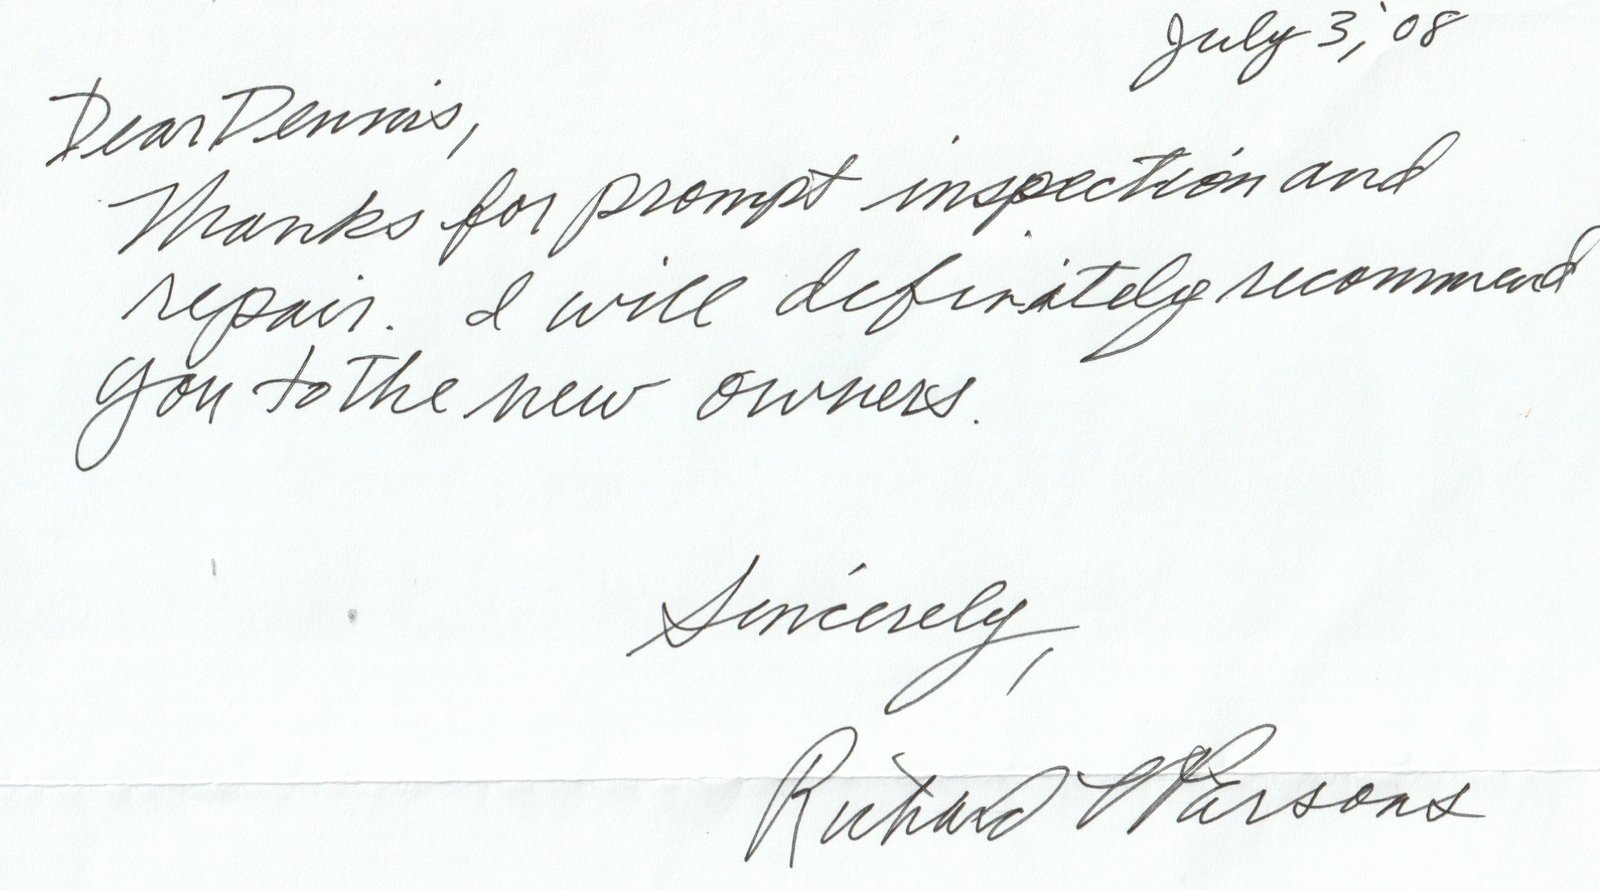 July 3, '08
Dear Dennis,
Thanks for prompt inspection and
repair. I will definitely recommend
you to the new owners.
Sincerely,
Richard W Parsons